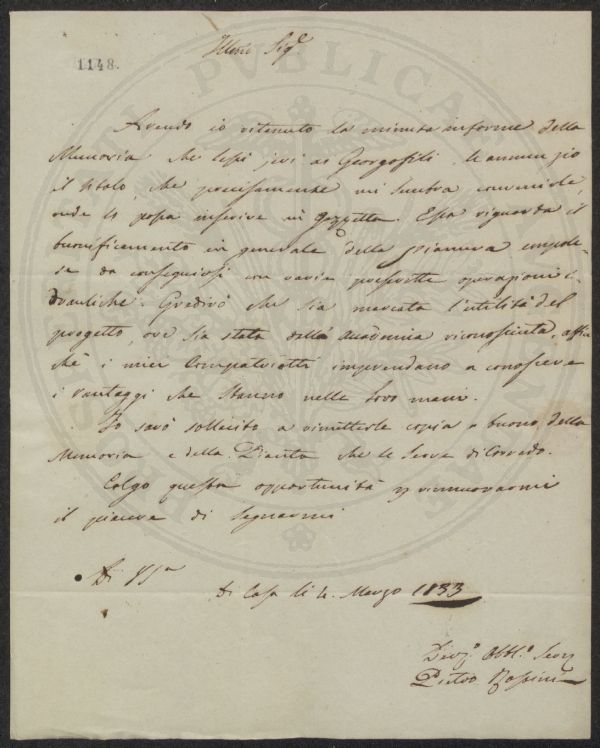 1148.
Illmo Sigre
Avendo io ritenuto la minuta informe della
Memoria che lessi jeri ai Georgofili, le annunzio
il titolo, che precisamente mi sembra convenirle,
onde lo possa inserire in Gazzetta. Essa riguarda il
bonificamento in generale della pianura empole-
se da conseguirsi con varie projettate operazioni i-
drauliche. Gradirò che sia marcata l'utilità del
progetto, ove sia stata dalla Accademia riconosciuta, affin
chè i miei Compatriotti imprendano a conoscere
i vantaggi che stanno nelle loro mani.
Io sarò sollecito a rimetterle copia a buono della
Memoria e della Pianta che le serve di Corredo.
Colgo questa opportunità p rinnuovarmi
il piacere di segnarmi
Di VSra
di Casa li 4. Marzo 1833
Devo. Obblo. Serv
Pietro